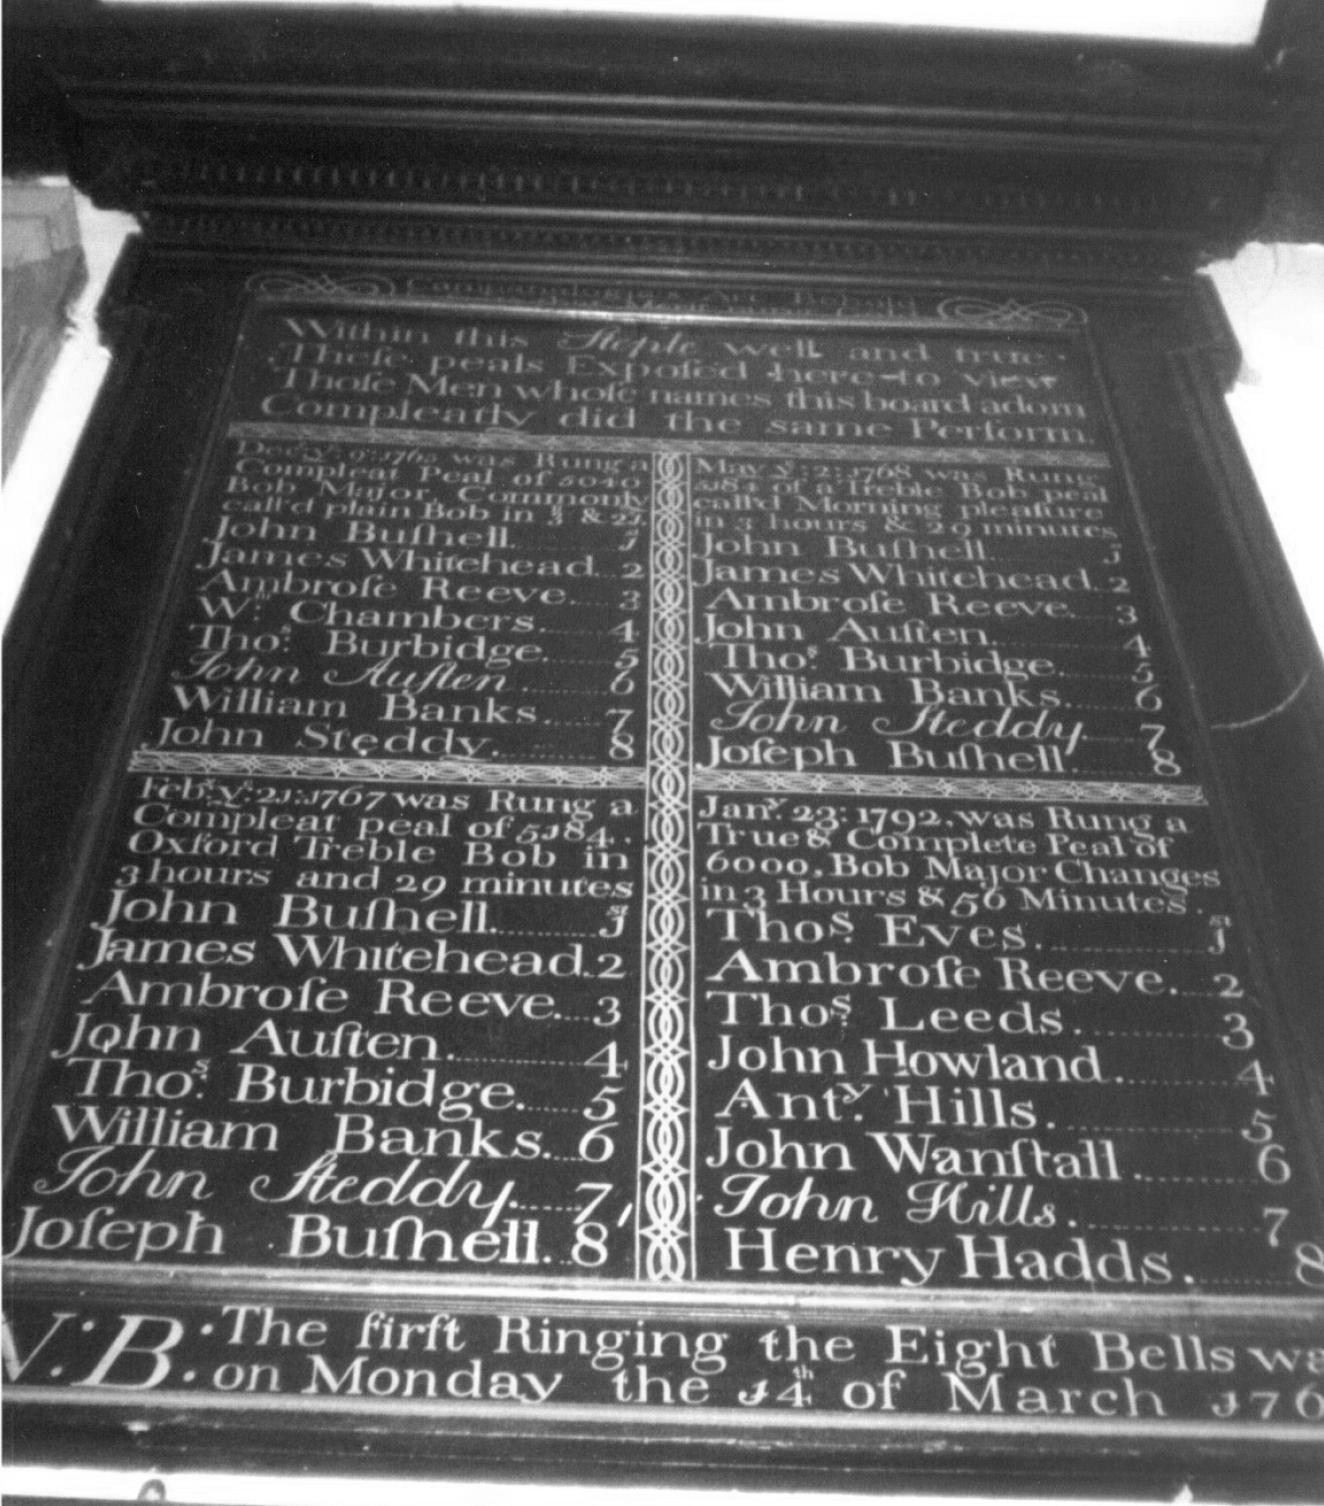 Campanologia's Art Behold
Within this Steple well and true
These peals Exposed here to view
Thoſe Men whoſe names this board adorn
Compleatly did the same Perform.
Decr. ye: 9: was Rung a
Compleat Peal of 5040
Bob Major, Commonly
call'd plain Bob in 3 & 21.
John Buſhell 1
James Whitehead 2
Ambroſe Reeve 3
Wm. Chambers 4
Thos. Burbidge 5
John Auſten 6
William Banks 7
John Steddy 8
Feb.y ye: 21: 1767 was Rung a
Compleat peal of 5184,
Oxford Treble Bob in
3 hours and 29 minutes
John Buſhell 1st
James Whitehead 2
Ambroſe Reeve 3
John Auſten 4
Thos. Burbidge 5
William Banks 6
John Steddy 7
Joſeph Buſhell 8
May ye: 2: 1768 was Rung
5184 of a Treble Bob peal
call'd Morning pleaſure
in 3 hours & 29 minutes
John Buſhell 1
James Whitehead 2
Ambroſe Reeve 3
John Auſten 4
Thos. Burbidge 5
William Banks 6
John Steddy 7
Joſeph Buſhell 8
Jany. 23: 1792, was Rung a
True & Complete Peal of
6000, Bob Major Changes
in 3 Hours & 56 Minutes.
Thos. Eves 1st
Ambroſe Reeve 2
Thos. Leeds 3
John Howland 4
Anty. Hills 5
John Wanſtall 6
John Hills 7
Henry Hadds 8
N:B: The firſt Ringing the Eight Bells wa
on Monday the 14th of March 176